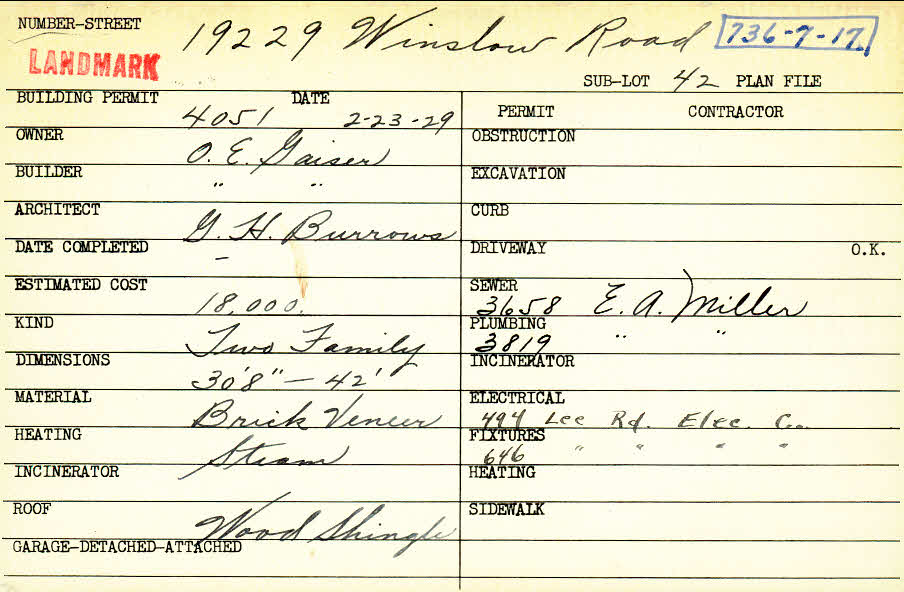 NUMBER-STREET 19229 Winslow Road 736-7-17
LANDMARK
SUB-LOT 42 PLAN FILE
BUILDING PERMIT 4051 DATE 2-23-29
OWNER O. E. Gaiser
BUILDER " "
ARCHITECT G. H. Burrows
DATE COMPLETED -
ESTIMATED COST 18,000.
KIND Two Family
DIMENSIONS 30'8" — 42'
MATERIAL Brick Veneer
HEATING Steam
INCINERATOR
ROOF Wood Shingle
GARAGE-DETACHED-ATTACHED
PERMIT CONTRACTOR
OBSTRUCTION
EXCAVATION
CURB
DRIVEWAY O.K.
SEWER
3658 E. A. Miller
PLUMBING
3819 " "
INCINERATOR
ELECTRICAL
494 Lee Rd. Elec. Co.
FIXTURES
646 " " " "
HEATING
SIDEWALK